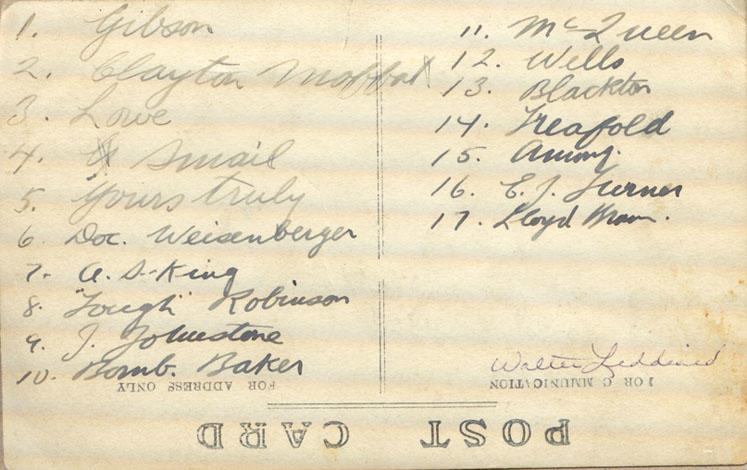 1. Gibson
2. Clayton Moffat
3. Lowe
4. Smail
5. Yours truly
6. Doc. Weisenberger
7. A. S-King
8. "Tough" Robinson
9. J. Johnstone
10. Bomb. Baker
11. McQueen
12. Wells
13. Blackton
14. Treafold
15.
16. E. J. Turner
17. Lloyd
Walter
FOR ADDRESS ONLY
FOR C MMUNICATION
POST CARD